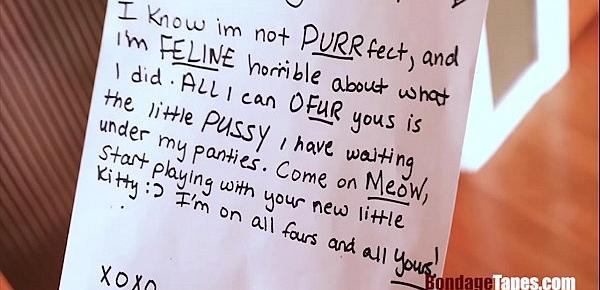 I Know im not PURRfect, and
i'm FELINE horrible about what
I did. ALL I can OFUR yous is
the little PUSSY I have waiting
under my panties. Come on MEOW,
start playing with your new little
Kitty :) I'm on all fours and all yours!
XOXO
BondageTapes.com